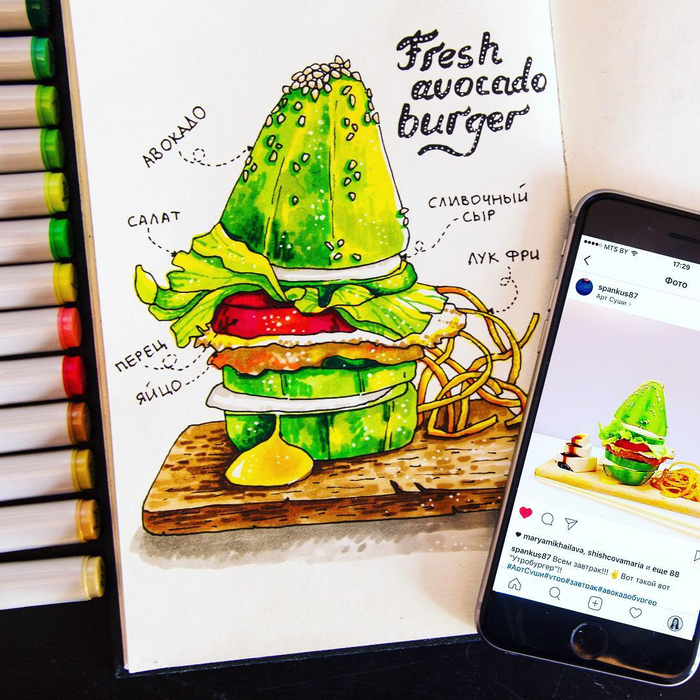 Fresh
avocado
burger
АВОКАДО
САЛАТ
СЛИВОЧНЫЙ
СЫР
ЛУК ФРИ
ПЕРЕЦ
ЯЙЦО
MTS BY
17:29
Фото
spankus87
Арт Суши
maryamikhailava, shishcovamaria и еще 88
spankus87 Всем завтрак!!! ✌ Вот такой вот
"Утробургер"!!
#АртСуши#утро#завтрак#авокадобургер